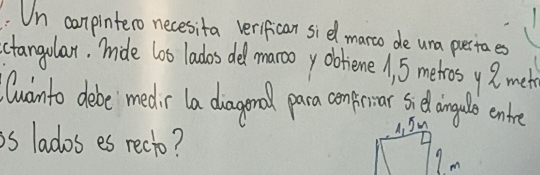 Un carpintero necesita verificar si el marco de una puerta es
ctangular. Mide los lados del marco y obtiene 1,5 metros y 2 metr
¿Cuánto debe medir la diagonal para confirmar si el ángulo entre
os lados es recto?
1,5m
2 m